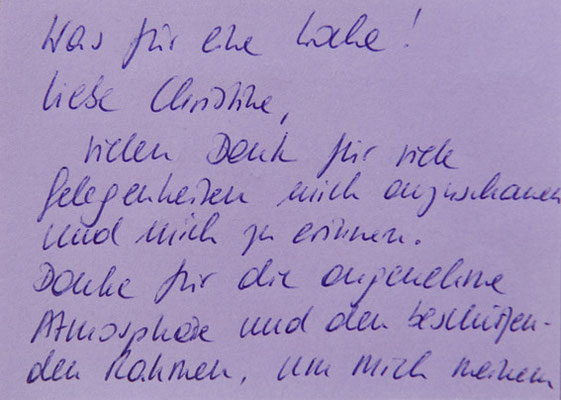 Was für eine Woche!
Liebe Christine,
vielen Dank für viele
Gelegenheiten mich anzuschauen
und mich zu erinnern.
Danke für die angenehme
Atmosphäre und den beschützen-
den Rahmen, um mich meinem